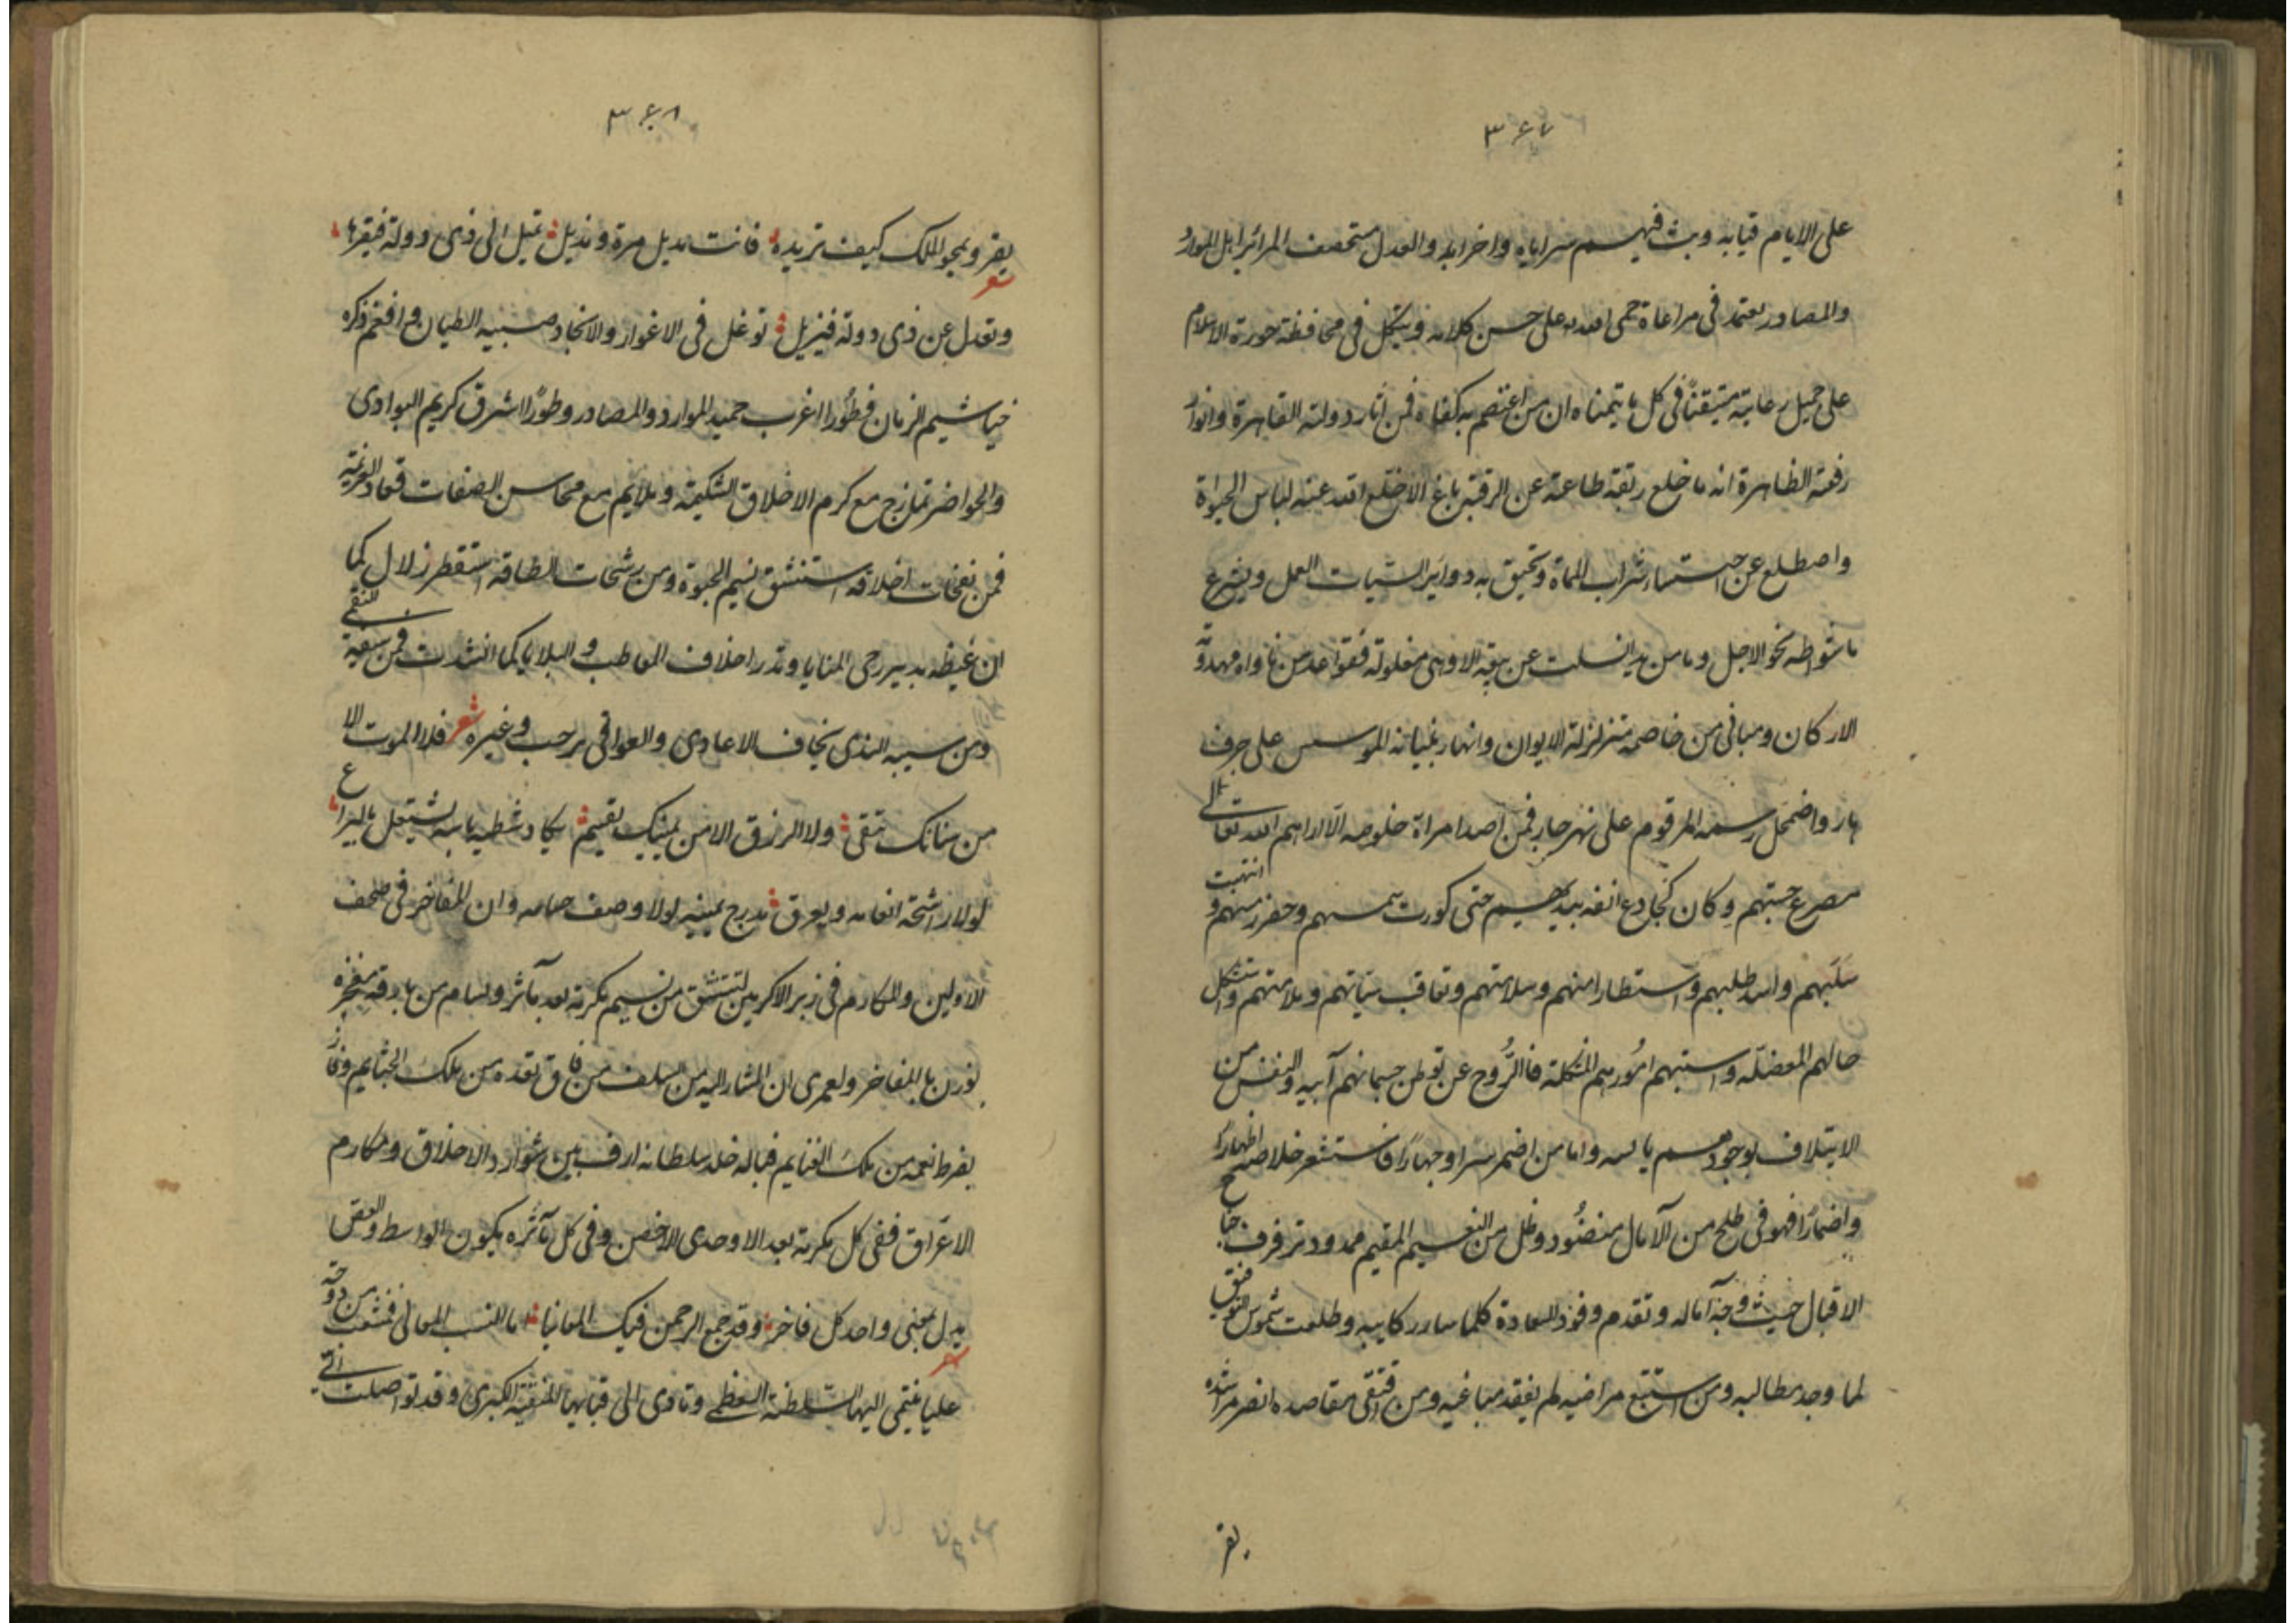 ۳۶۷
على الايام قبابه وبث فيهم سراياه واحزابه والعدل مستحصف المرائر اهل الموارد
والمصادر يعتمد فى مراعاة حمى الله على حسن كلائه ويتكل فى محافظة حوزة الاسلام
على جميل رعايته متيقنًا فى كل ما يتمناه ان من اعتصم به كفاه فمن اثار دولته القاهرة وانوار
رفعته الظاهرة انه ما خلع ربقة طاعته عن الرقبة باغ الا خلع الله عنه لباس الحيوة
واصطلع عن احتساء شراب المماة وتحيق به دوائر السيات العمل ويشرع
ما شواطه نحو الاجل وما من يد انسلت عن بيعته الا وهى مغلولة فقواعد من غاواه مهدوّة
الاركان ومبانى من خاصمه متزلزلة الايوان وانهار بنيانه الموسس على جرف
هار واضمحل رسمه المرقوم على نهر جار فمن اصدا مراة خلوصه الا اراهم الله تعالى
مصرع جثتهم وكان كجادع انفه بيده حتى كورت شمسهم وحفر رمسهم و انتهبت
سلبهم واسد طلبهم واستطار امنهم وسلامتهم وتعاقب سيّاتهم وملامتهم واستشكل
حالهم المعضلة واستبهم امورهم المشكلة فالرُّوح عن توطن جسمانهم آبيه والنفس من
الايتلاف بوجودهم يائسه واما من اضمر سرا وجهارًا فاستشعر خلاصه اظهارًا
واضمارًا فهو فى طلح من الآمال منضُود وظل من النعيم المقيم ممدود ترفرف جناح
الاقبال حيث وجه آماله وتقدم وفود السعادة كلما سار ركابيه وطلعت شموس التوفيق
لما وجد مطالبه ومن استتبع مراضيه لم يفقد مباغيه ومن اقتفى مقاصده انصر مراشده
يفر
۳۶۸
يفر ويمحو الملك كيف تريده فانت مديل مرة ومذيل تميل الى ذى دولة فيقرها
شعر
وتعدل عن ذى دولة فيزيل توغل فى الاغوار والانجاد صيته الطيان و افغم ذكره
خياشيم الزمان فطُورا اغرب حميد الموارد والمصادر وطورًا اشرق كريم البوادى
والحواضر تمازج مع كرم الاخلاق الشكيمة وملايم مع محاسن الصفات قعاد العزيمة
فمن نفحات اخلاقه استنشق نسيم الحيوة ومن رشحات الطافه استقطر زلال كما
ان غيظه يدير رحى المنايا وتدر اخلاف المعاطب و البلايا كما انشدت فمن سيفه للتقى
ومن سيبه الذى يخاف الاعادى والعوافى يرحب وغيره شعر فلا الموت الا
من سنانك تتقى ولا الرزق الا من يمينك تقسم يكاد شظية باسه يشتعل باليراع
لولا راشحة انعامه ويعرق مدرج يمينه لولا وصف حسامه وان للمفاخر فى صحف
الاولين والمكارم فى زبر الاكرمين لتنشق من نسيم مكرمة بعد مآثر وابسام من بارقة مفخرة
نورن بالمفاخر ولعمرى ان المشار اليه من السلف من فاق بقده من تلك الجثايم وفاز
بفرط نعمه من تلك الغنايم فباله خلد سلطانه ارف بين شوارد الاخلاق ومكارم
الاعراق ففى كل مكرمة بعد الاوحدى الاخص وفى كل مآثره يكون الواسط والفص
يدل بمعنى واحد كل فاخر وقد جمع الرحمن فيك المعانيا اما النسب المعالى فمنشعب من دوحة
شعر
عليا ينتمى اليها السلطنة العظمى وتاوى الى قبابها المنقبة الكبرى وقد تواصلت الى